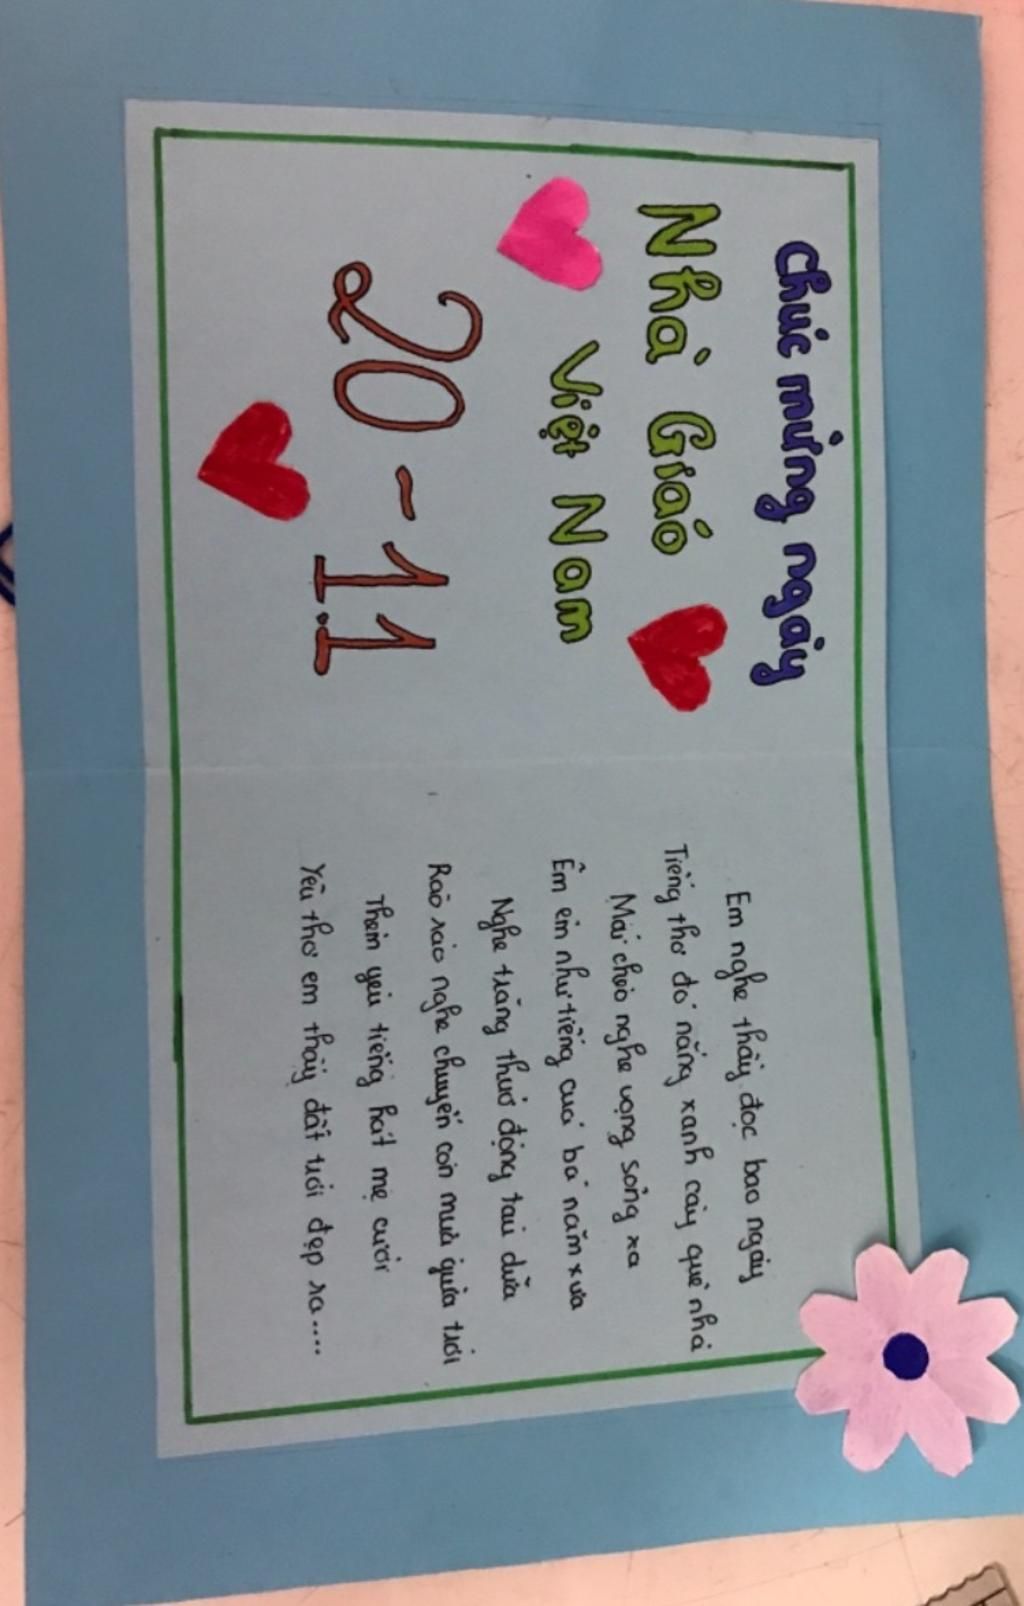 Chúc mừng ngày
Nhà Giáo
Việt Nam
20-11
Em nghe thầy đọc bao ngày
Tiếng thơ đỏ nắng xanh cây quê nhà
Mái chèo nghe vọng sông xa
Êm êm như tiếng của bà năm xưa
Nghe trăng thuở động tàu dừa
Rào rào nghe chuyển cơn mưa giữa trời
Thêm yêu tiếng hát mẹ cười
Yêu thơ em thấy đất trời đẹp ra....